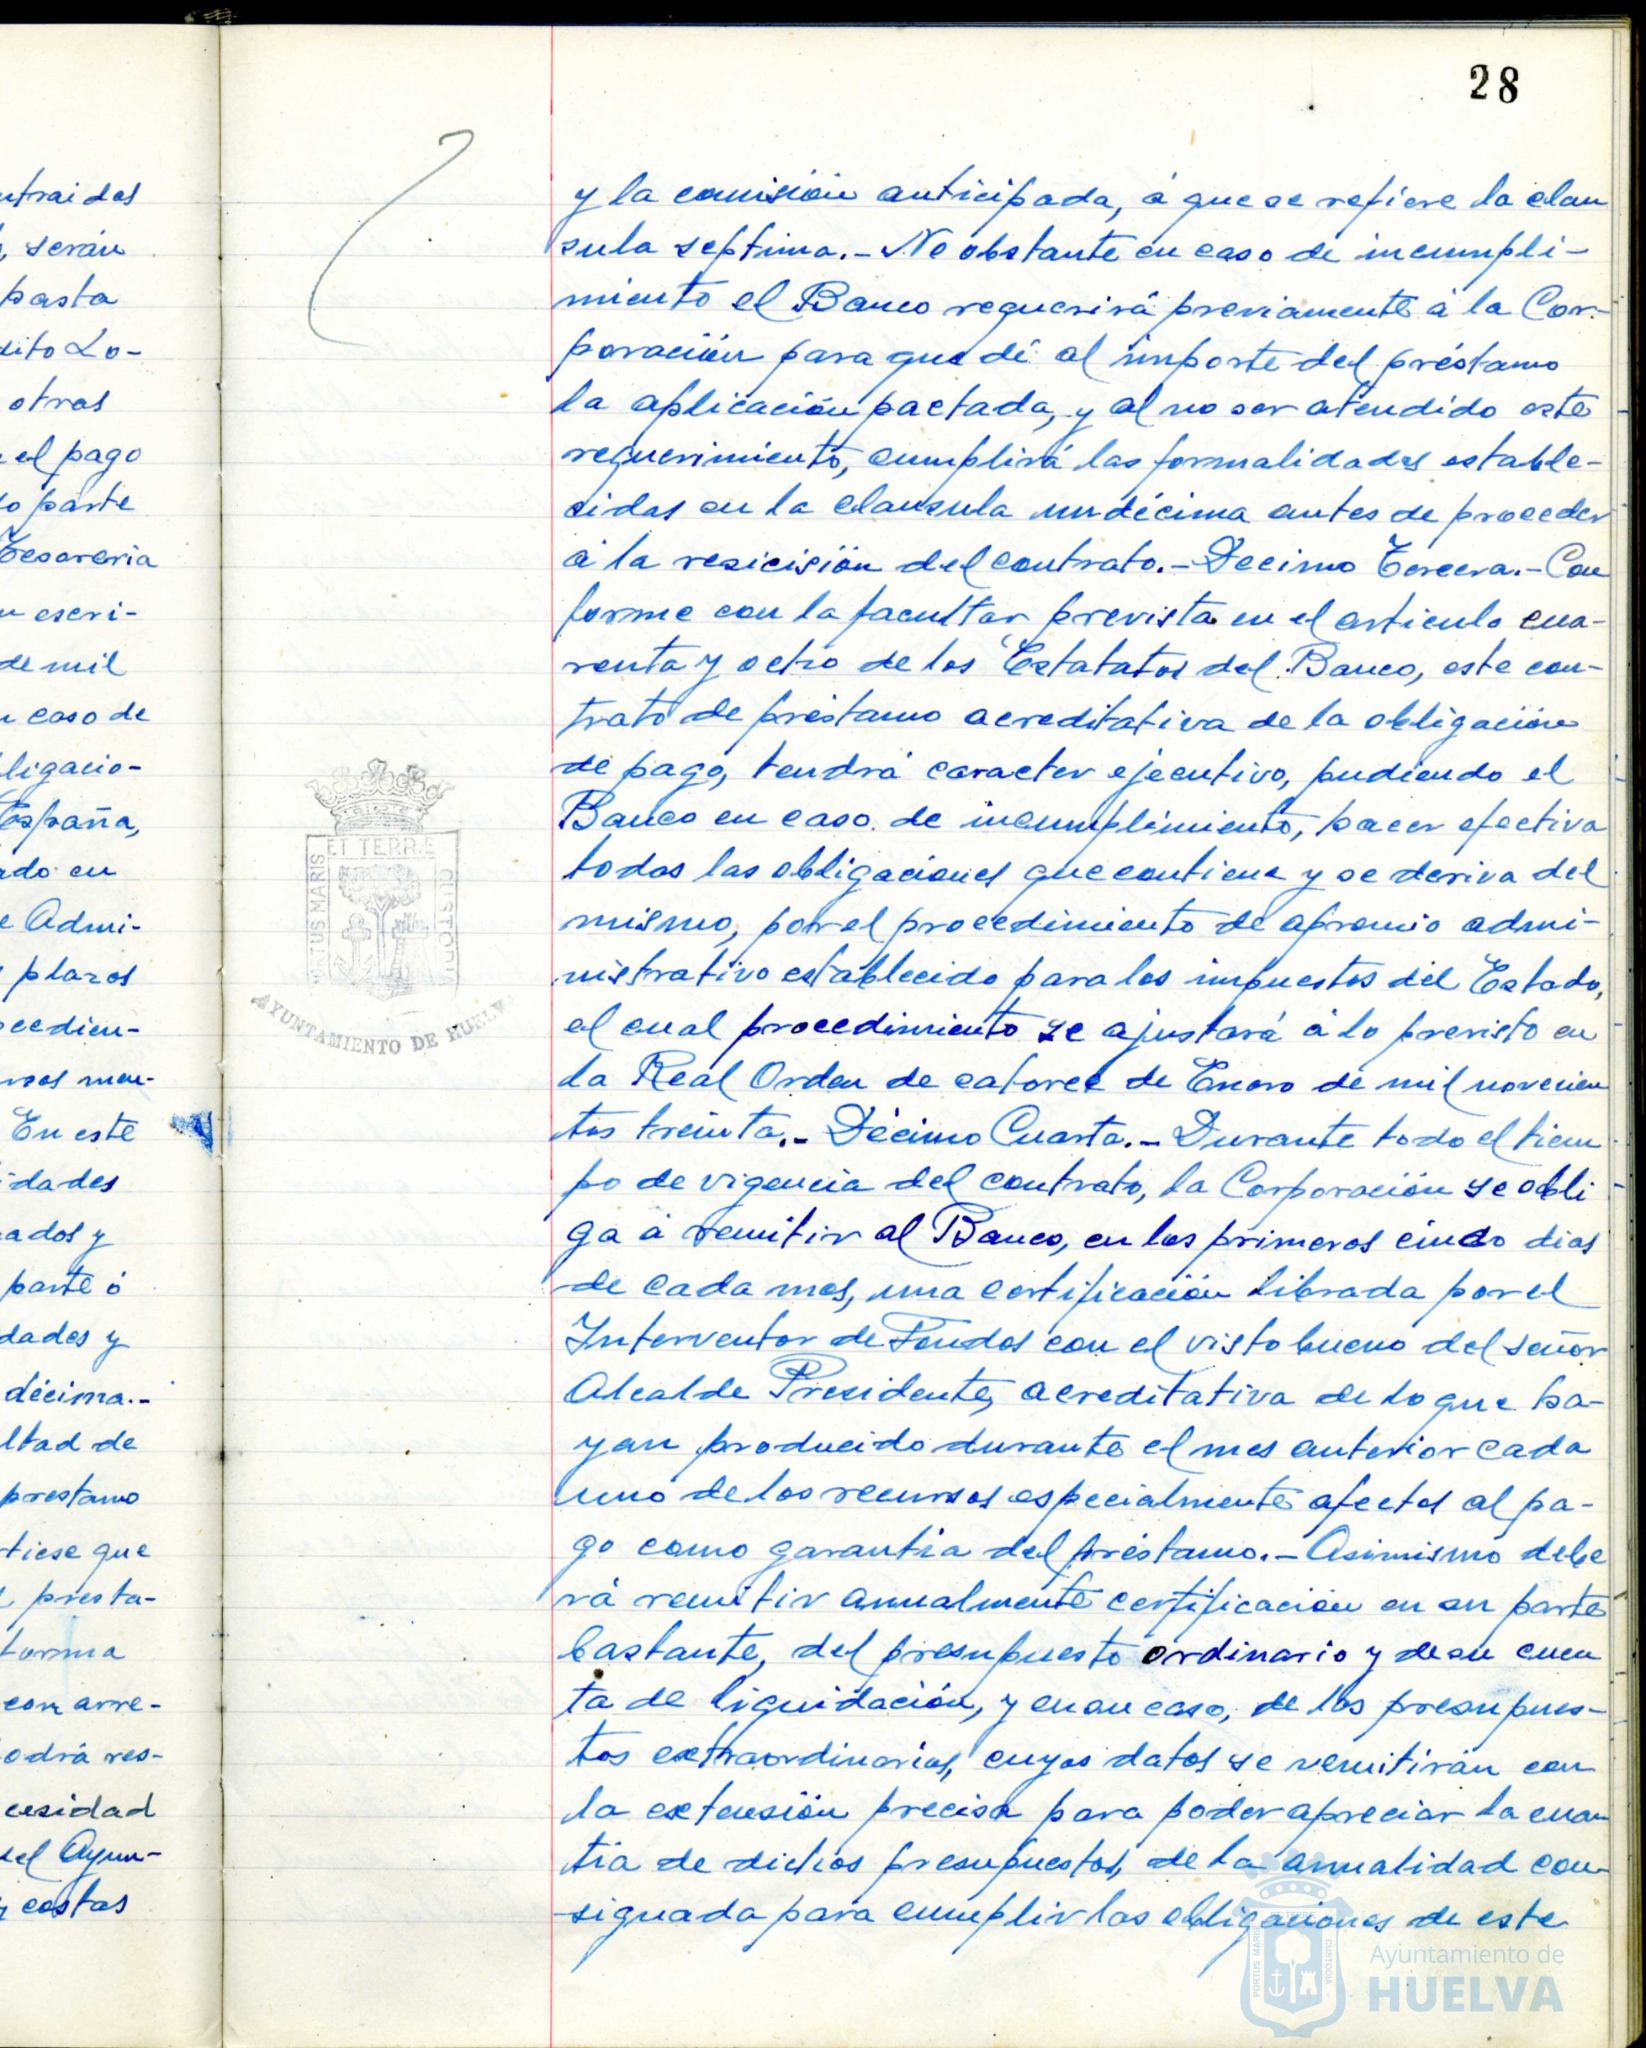 28
ntraidos
, serán
pasta
dito Lo-
otras
el pago
o parte
Tesoreria
n escri-
de mil
n caso de
ligacio-
España,
ado en
e Admi-
plazos
cedien-
rsos men-
En este
idades
ados y
parte ó
dades y
décima.-
ltad de
prestamo
tiese que
presta-
forma
con arre-
odrá res-
cesidad
del Ayun-
costas
y la comisión anticipada, á que se refiere la clau
sula septima.- No obstante en caso de incumpli-
miento el Banco requerirá previamente á la Cor-
poración para que dé al importe del préstamo
la aplicación pactada, y al no ser atendido este
requerimiento, cumplirá las formalidades estable-
cidas en la clausula undécima antes de proceder
á la resicisión del contrato.- Decimo Tercera.- Con
forme con la facultar prevista en el articulo cua-
renta y ocho de los Estatatos del Banco, este con-
trato de préstamo acreditativa de la obligación
de pago, tendrá caracter ejecutivo, pudiendo el
Banco en caso de incumplimiento, hacer efectiva
todas las obligaciones que contiene y se deriva del
mismo, por el procedimiento de apremio admi-
nistrativo establecido para los impuestos del Estado,
el cual procedimiento se ajustará á lo previsto en
la Real Orden de catorce de Enero de mil novecien
tos treinta.- Décimo Cuarta.- Durante todo el tiem
po de vigencia del contrato, la Corporación se obli
ga á remitir al Banco, en los primeros cinco dias
de cada mes, una certificación librada por el
Interventor de Fondos con el visto bueno del señor
Alcalde Presidente, acreditativa de lo que ha-
yan producido durante el mes anterior cada
uno de los recursos especialmente afectos al pa-
go como garantia del préstamo.- Asimismo debe
rá remitir anualmente certificación en su parte
bastante, del presupuesto ordinario y de su cuen
ta de liquidación, y en su caso, de los presupues-
tos extraordinarios, cuyos datos se remitirán con
la extensión precisa para poder apreciar la cuan
tia de dichos presupuestos, de la anualidad con-
signada para cumplir las obligaciones de este
ET TERRE
PORTUS MARIS
CUSTODIA
AYUNTAMIENTO DE HUELVA
PORTUS MARIS
CUSTODIA
Ayuntamiento de
HUELVA